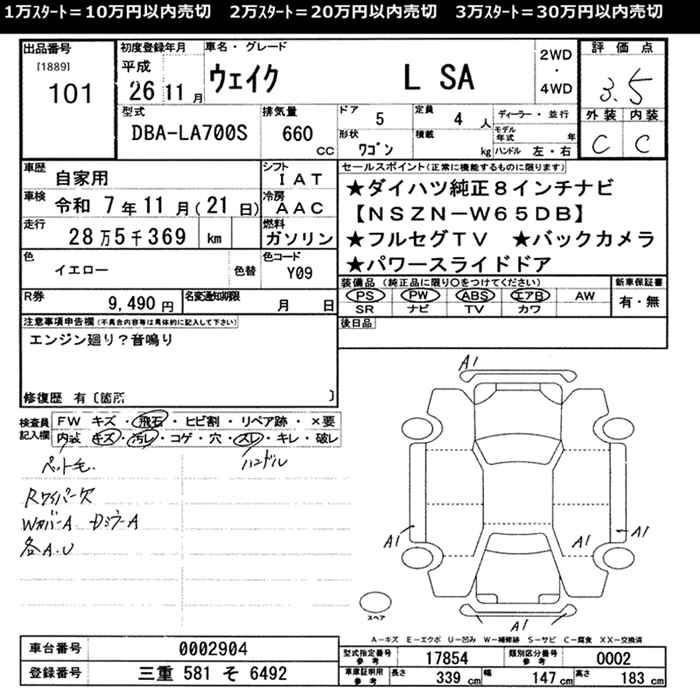 1万ｽﾀｰﾄ＝10万円以内売切　2万ｽﾀｰﾄ＝20万円以内売切　3万ｽﾀｰﾄ＝30万円以内売切
出品番号
[1889]
101
初度登録年月
平成
26 11 月
車名・グレード
ウェイク　L SA
2WD
・
4WD
評価点
3.5
外装 内装
C C
型式
DBA-LA700S
排気量
660 cc
ドア
5
定員
4 人
形状
ワゴン
積載
kg
ディーラー・並行
モデル年式 年
ハンドル 左・右
車歴
自家用
シフト
IAT
車検
令和 7年11月(21日)
冷房
AAC
走行
28万5千369 km
燃料
ガソリン
色
イエロー
色替
色コード
Y09
R券
9,490円
名変通知期限
月 日
セールスポイント(正常に機能するものに限ります)
★ダイハツ純正８インチナビ
【NSZN－W65DB】
★フルセグTV ★バックカメラ
★パワースライドドア
装備品 (純正品に限り○をつけてください)
PS PW ABS エアB AW
SR ナビ TV カワ
新車保証書
有・無
後日品
注意事項申告欄 (不具合内容等は具体的に記入して下さい)
エンジン廻り？音鳴り
修復歴 有〔箇所 〕
検査員
記入欄
FW キズ・飛石・ヒビ割・リペア跡・×要
内装 キズ・汚レ・コゲ・穴・スレ・キレ・破レ
ペット毛.
ハンドル
Rワイパー欠
WカバーA DミラーA
各A.U
A1
A1
A1
A1
A1
スペア
A－キズ E－エクボ U－凹み W－補修跡 S－サビ C－腐食 XX－交換済
車台番号
0002904
登録番号
三重 581 そ 6492
型式指定番号
参考
17854
類別区分番号
参考
0002
車庫証明用
参考
長さ 339 cm 幅 147 cm 高さ 183 cm